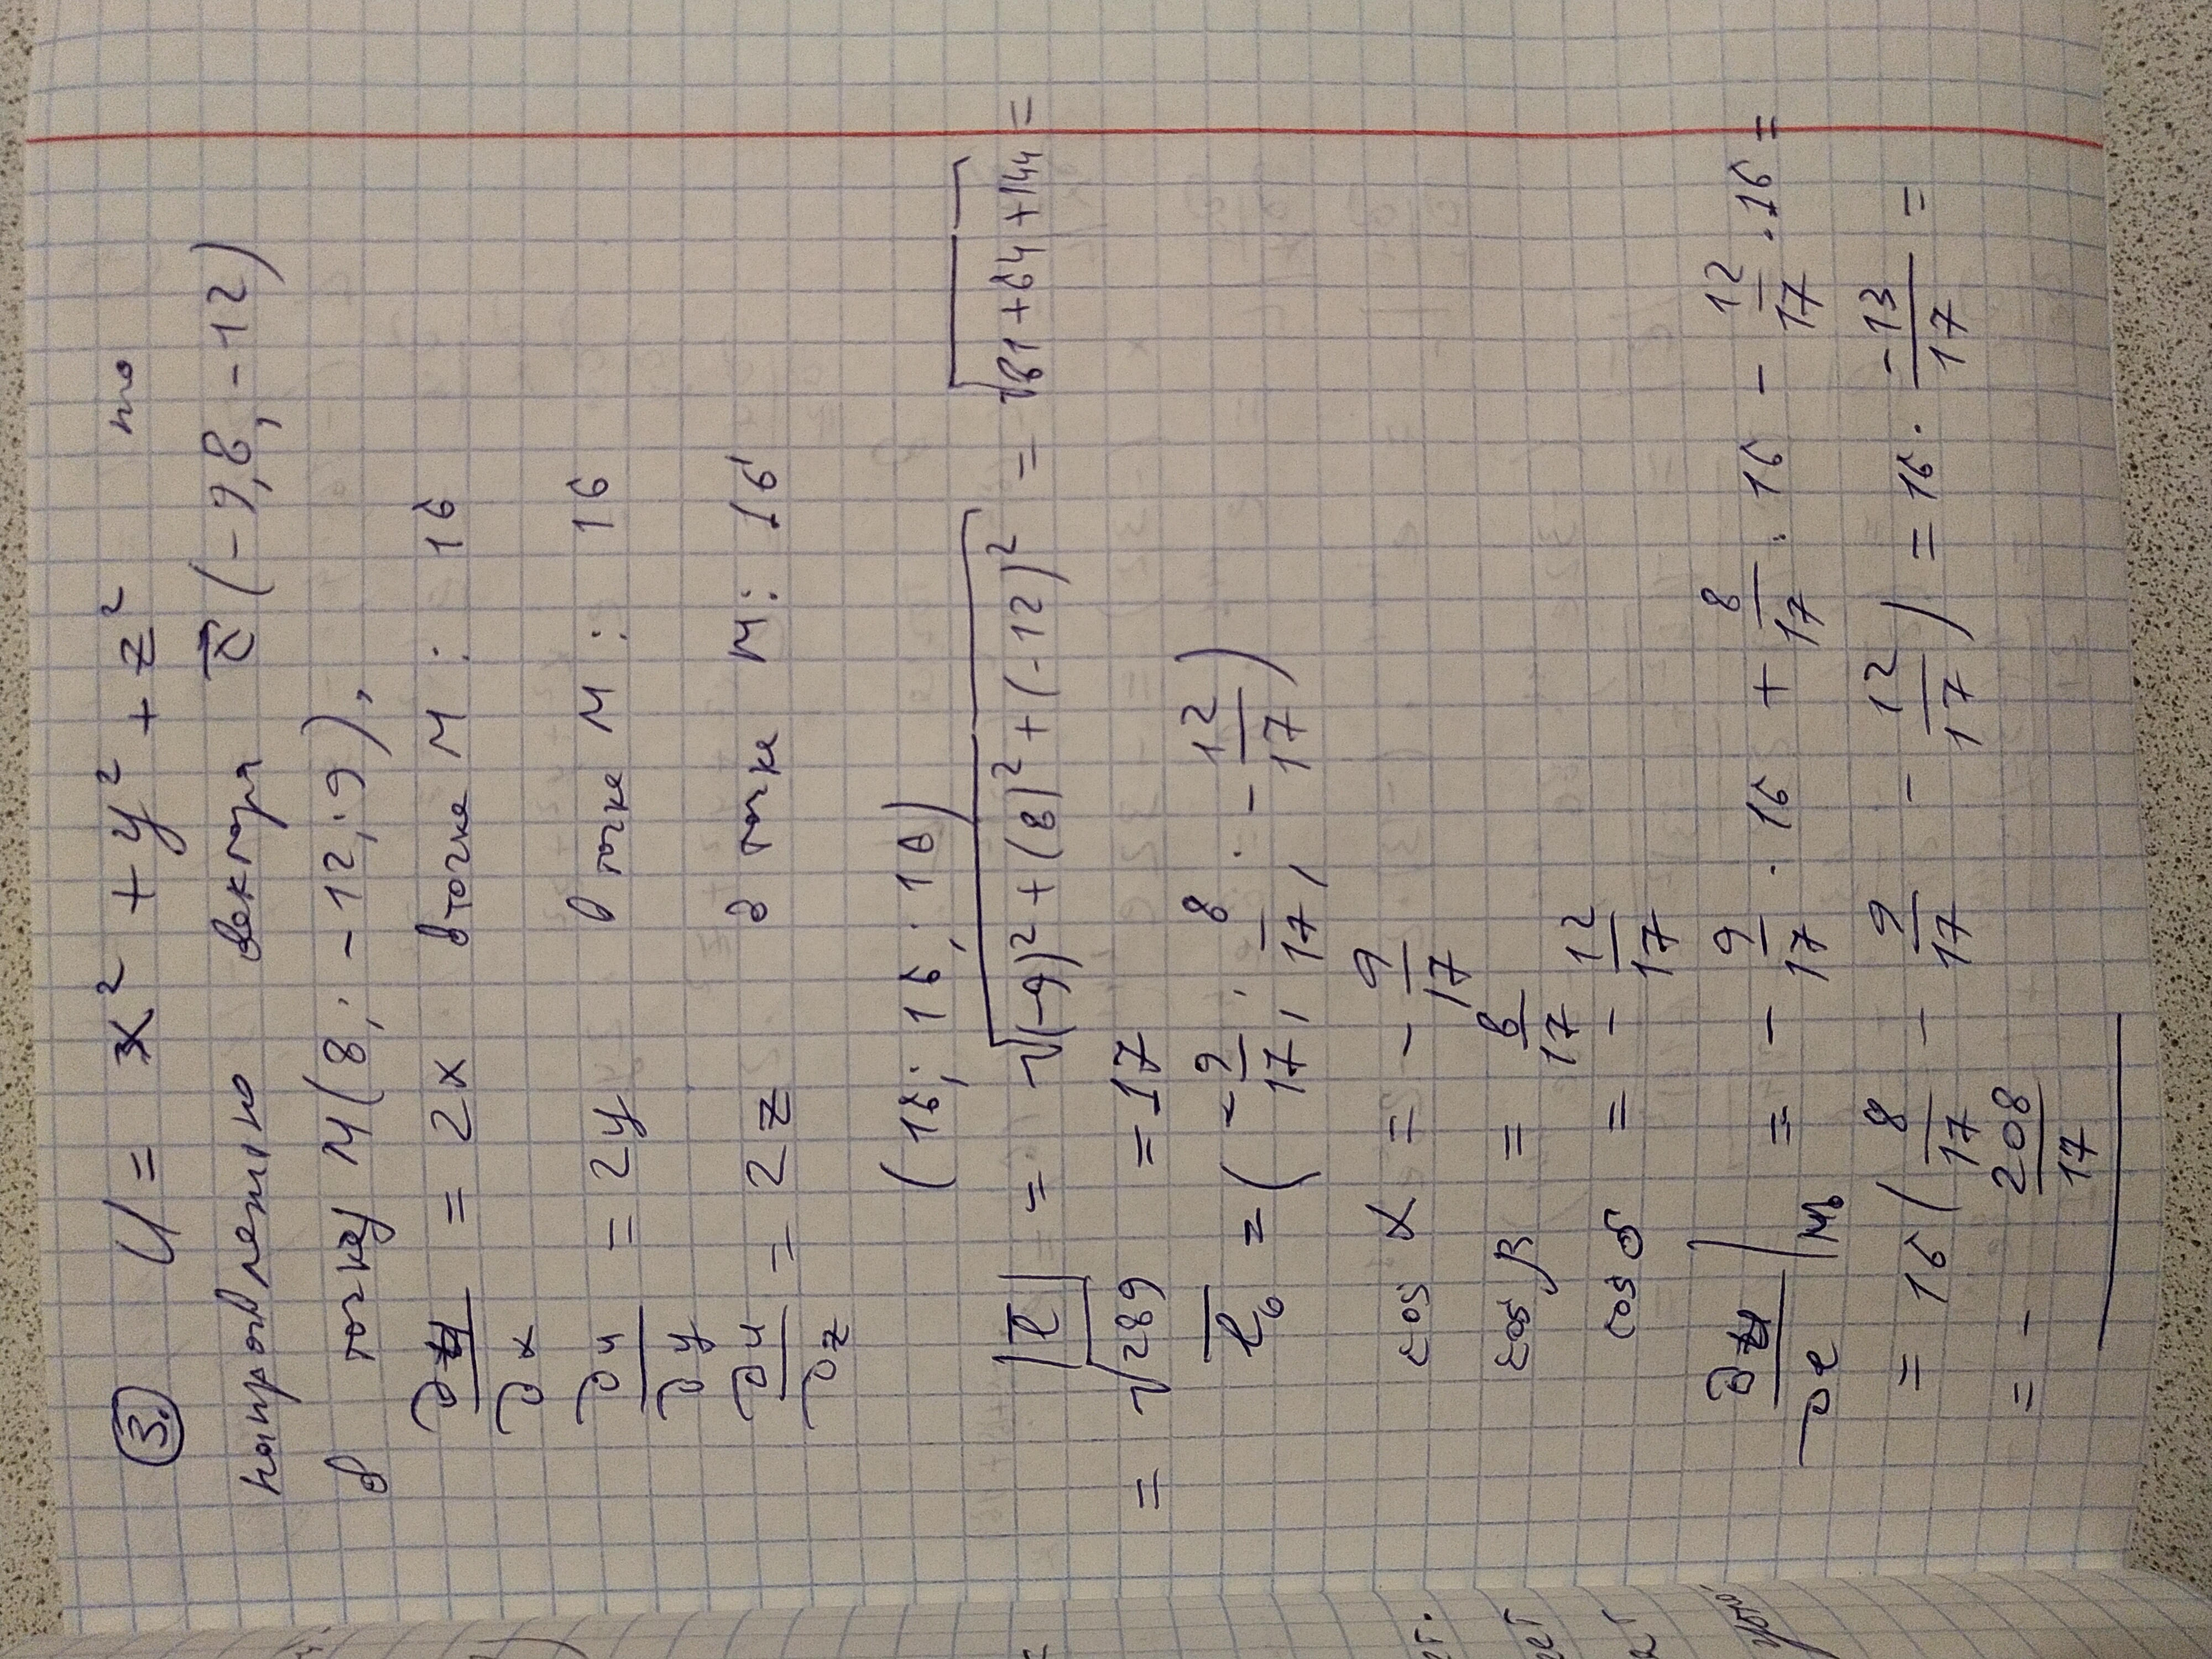 3. U = x² + y² + z² по
направлению вектора c⃗ (-9, 8, -12)
в точку M(8; -12; 9).
∂u/∂x = 2x в точке M: 16
∂u/∂y = 2y в точке M: 16
∂u/∂z = 2z в точке M: 16
(16; 16; 16)
|l̅| = √((-9)² + (8)² + (-12)²) = √(81 + 64 + 144) =
= √289 = 17
l̅₀ = (-9/17; 8/17; -12/17)
cos α = -9/17
cos β = 8/17
cos δ = -12/17
∂u/∂l |M₀ = -9/17 · 16 + 8/17 · 16 - 12/17 · 16 =
= 16(8/17 - 9/17 - 12/17) = 16 · -13/17 =
= -208/17